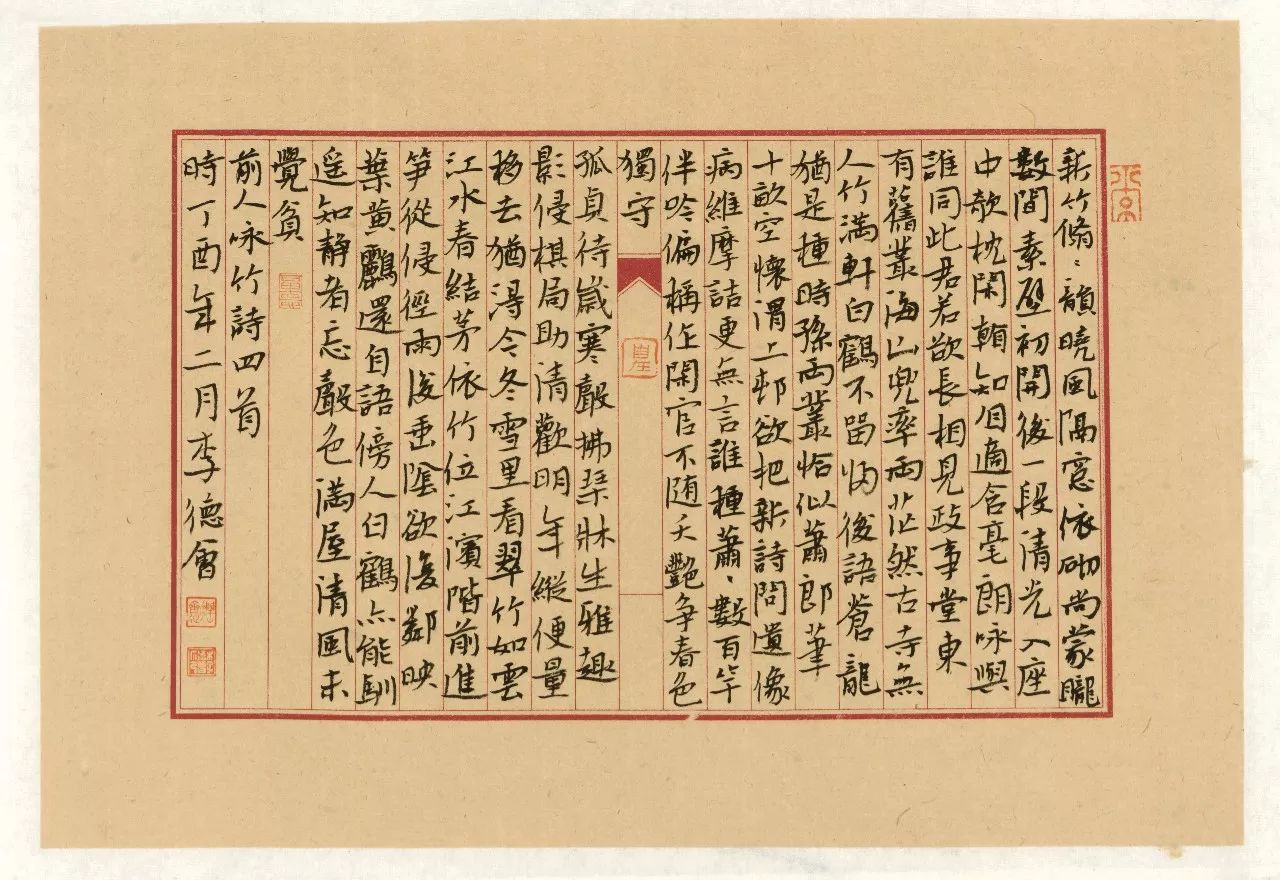 新竹脩〻韻曉風隔窓依砌尚蒙朧
數間素壁初開後一段清光入座
中欹枕閑頼知自適含毫朗咏與
誰同此君若欲長相見政事堂東
有舊叢海山兜率兩茫然古寺無
人竹滿軒白鶴不留歸後語蒼龍
猶是種時孫兩叢恰似蕭郎筆
十畝空懷渭上邨欲把新詩問遺像
病維摩詰更無言誰種蕭〻數百竿
伴吟偏稱作閑官不随夭艷争春色
獨守
孤貞待歲寒聲拂琴牀生雅趣
影侵棋局助清歡明年縱便量
移去猶得今冬雪里看翠竹如雲
江水春結茅依竹位江濱階前進
笋從侵徑雨後垂陰欲復鄰映
葉黄鸝還自語傍人白鶴亦能馴
遥知静者忘聲色滿屋清風未
覺貧
前人咏竹詩四首
時丁酉年二月李德會